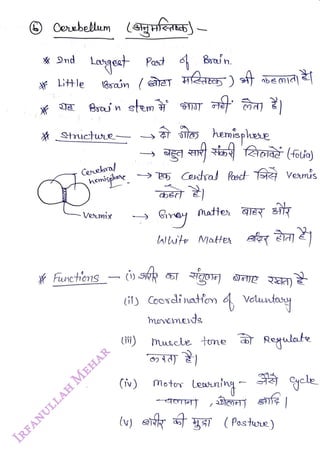 ⑥ Cerebellum (अनुमस्तिष्क) -
* 2nd Largest Part of Brain.
* Little Brain (छोटा मस्तिष्क) भी कहलाता है।
* यह Brain stem में भाग नहीं लेता है।
* Structure - → दो गोल hemisphere
→ बहुत सारी संकरी सिलवटें (folia)
Cerebral hemisphere
→ एक Central Part जिसे vermis कहते है।
Vermix
→ Grey matter बाहर और
White Matter अंदर होता है।
* Functions - (i) शरीर का संतुलन बनाए रखता है
(ii) Coordination of voluntary
movements
(iii) muscle tone को Regulate
करता है।
(iv) motor Learning - जैसे Cycle
चलाना, खेलना आदि।
(v) शरीर की मुद्रा (Posture)
IRFANULLAH MEHAR